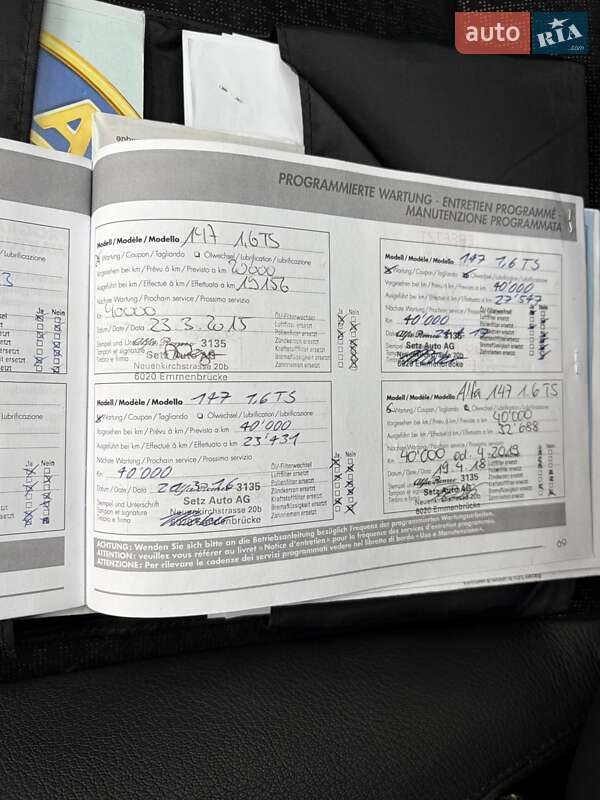 auto RIA .com
PROGRAMMIERTE WARTUNG - ENTRETIEN PROGRAMMÉ -
MANUTENZIONE PROGRAMMATA
Modell/Modèle/Modello 147 1,6 TS
Wartung/Coupon/Tagliando Ölwechsel/Lubrification/Lubrificazione
Vorgesehen bei km/Prévu à km/Previsto a km 20000
Ausgeführt bei km/Effectué à km/Effettuato a km 19156
Nächste Wartung/Prochain service/Prossimo servizio
40000
Datum/Date/Data 23.3.2015
Stempel und Unterschrift Alfa Romeo 3135
Tampon et signature Setz Auto AG
Timbro e firma Neuenkirchstrasse 20b
6020 Emmenbrücke
Ja Nein
Ölfilterwechsel
Luftfilter ersetzt
Pollenfilter ersetzt
Zündkerzen ersetzt
Bremsflüssigkeit ersetzt
Zahnriemen ersetzt
Modell/Modèle/Modello 147 1,6 TS
Wartung/Coupon/Tagliando Ölwechsel/Lubrification/Lubrificazione
Vorgesehen bei km/Prévu à km/Previsto a km 40'000
Ausgeführt bei km/Effectué à km/Effettuato a km 23'431
Nächste Wartung/Prochain service/Prossimo servizio
Km 40'000
Datum/Date/Data
Stempel und Unterschrift Alfa Romeo 3135
Tampon et signature Setz Auto AG
Timbro e firma Neuenkirchstrasse 20b
Emmenbrücke
Ja Nein
Ölfilterwechsel
Luftfilter ersetzt
Pollenfilter ersetzt
Zündkerzen ersetzt
Bremsflüssigkeit ersetzt
Zahnriemen ersetzt
Modell/Modèle/Modello 147 1,6 TS
Wartung/Coupon/Tagliando Ölwechsel/Lubrification/Lubrificazione
Vorgesehen bei km/Prévu à km/Previsto a km 40'000
Ausgeführt bei km/Effectué à km/Effettuato a km 27'547
Nächste Wartung/Prochain service/Prossimo servizio
Km 40'000
Datum/Date/Data
Alfa Romeo 3135
Setz Auto AG
Neuenkirchstrasse 20b
6020 Emmenbrücke
Modell/Modèle/Modello Alfa 147 1.6 TS
Wartung/Coupon/Tagliando Ölwechsel/Lubrification/Lubrificazione
Vorgesehen bei km/Prévu à km/Previsto a km 40'000
Ausgeführt bei km/Effectué à km/Effettuato a km 32'688
Nächste Wartung/Prochain service/Prossimo servizio
40'000 od. 4.2019
Datum/Date/Data 19.4.18
Alfa Romeo 3135
Setz Auto AG
Neuenkirchstrasse 20b
6020 Emmenbrücke
ACHTUNG: Wenden Sie sich bitte an die Betriebsanleitung bezüglich Frequenz der programmierten Wartungsarbeiten.
ATTENTION: veuillez vous référer au livret « Notice d'entretien » pour la fréquence des services d'entretien programmés.
ATTENZIONE: Per rilevare le cadenze dei servizi programmati vedere nel libretto di bordo « Uso e Manutenzione ».
69